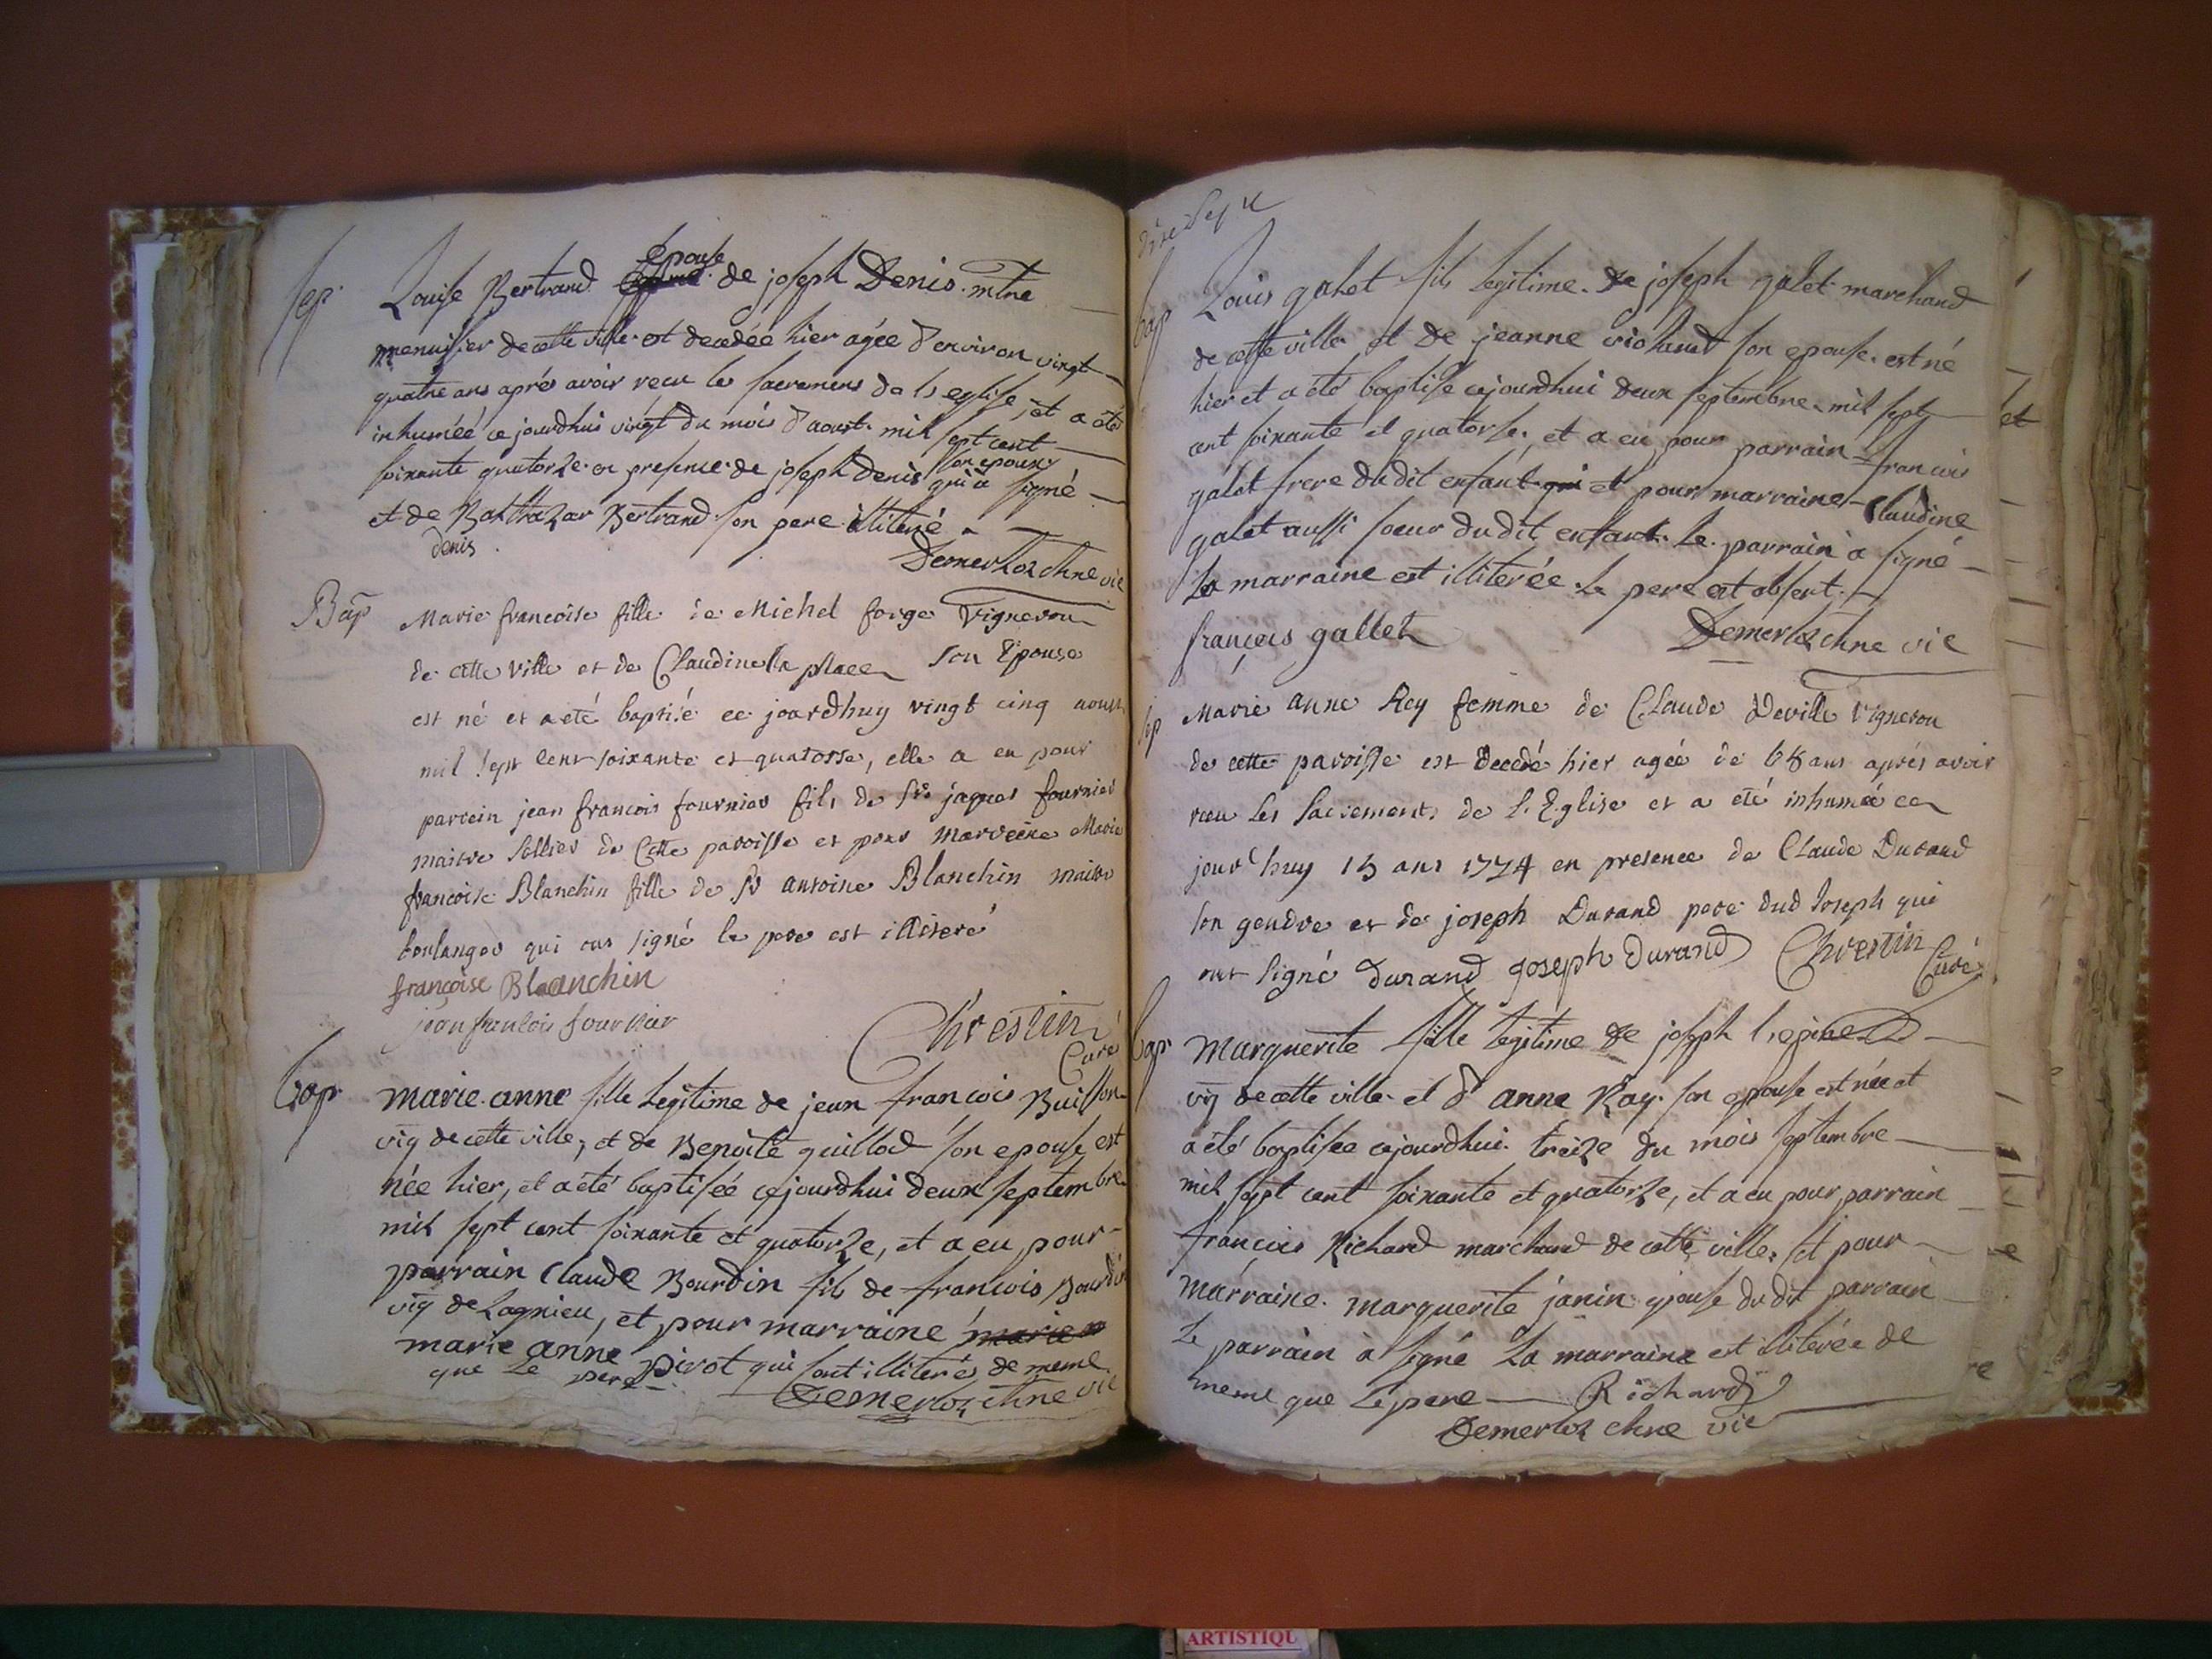 sep.
Louise Bertrand epouse de joseph Denis mtre
menuisier de cette ville est decedéé hier agée d'environ vingt
quatre ans aprés avoir recu les sacremens de l'eglise, et a été
inhuméé ce jourdhui vingt du mois d'aoust mil sept cent
soixante quatorze en presence de joseph Denis son epoux qui a signé
et de Balthazar Bertrand son pere illiteré
denis
Demerloz chne vic
Bap
Marie francoise fille de Michel forge Vigneron
de cette ville et de Claudine la place son Epouse
est né et a eté baptisé ce jourdhuy vingt cinq aoust
mil sept cent soixante et quatorse, elle a eu pour
parrein jean francois fournier fils de Sr jaques fournier
maitre sellier de Cette paroisse et pour marreine Marie
francoise Blanchin fille de Sr antoine Blanchin maitre
boulanger qui ont signé le pere est illiteré
françoise Blanchin
jean francois fournier
Chrestin
Curé
bap
marie anne fille legitime de jean francois Buisson
vig de cette ville, et de Benoite guillod son epouse est
née hier, et a été baptiséé cejourdhui deux septembre
mil sept cent soixante et quatorze, et a eu pour
parrain Claude Bourdin fils de francois Bourdin
vig de Lagnieu, et pour marraine marie
marie anne pivot qui sont illiterés de meme
que le pere
Demerloz chne vic
bap
Louis galet fils legitime de joseph galet marchand
de cette ville et de jeanne violand son epouse est né
hier et a été baptisé cejourdhui deux septembre mil sept
cent soixante et quatorse, et a eu pour parrain francois
galet frere dudit enfant qui et pour marraine Claudine
galet aussi soeur dudit enfant. Le parrain a signé
La marraine est illiterée le pere est absent.
françois gallet
Demerloz chne vic
sep
Marie anne Rey femme de Claude Deville Vigneron
de cette paroisse est decedé hier agée de 68 ans aprés avoir
recu les sacrements de l'Eglise et a eté inhumée ce
jourdhuy 13 ans 1774 en presence de Claude Durand
son gendre et de joseph Durand pere dud Joseph qui
ont signé Durand Joseph Durand Chrestin
Curé
bap
Marguerite fille legitime de joseph lepine
vig de cette ville et d'anne Ray son epouse est née et
a été baptisée cejourdhui treize du mois septembre
mil sept cent soixante et quatorze, et a eu pour parrain
francois Richard marchand de cette ville, et pour
marraine marguerite janin epouse dudit parrain
Le parrain a signé La marraine est illiterée de
meme que le pere Richard
Demerloz chne vic
et
re
ARTISTIQU